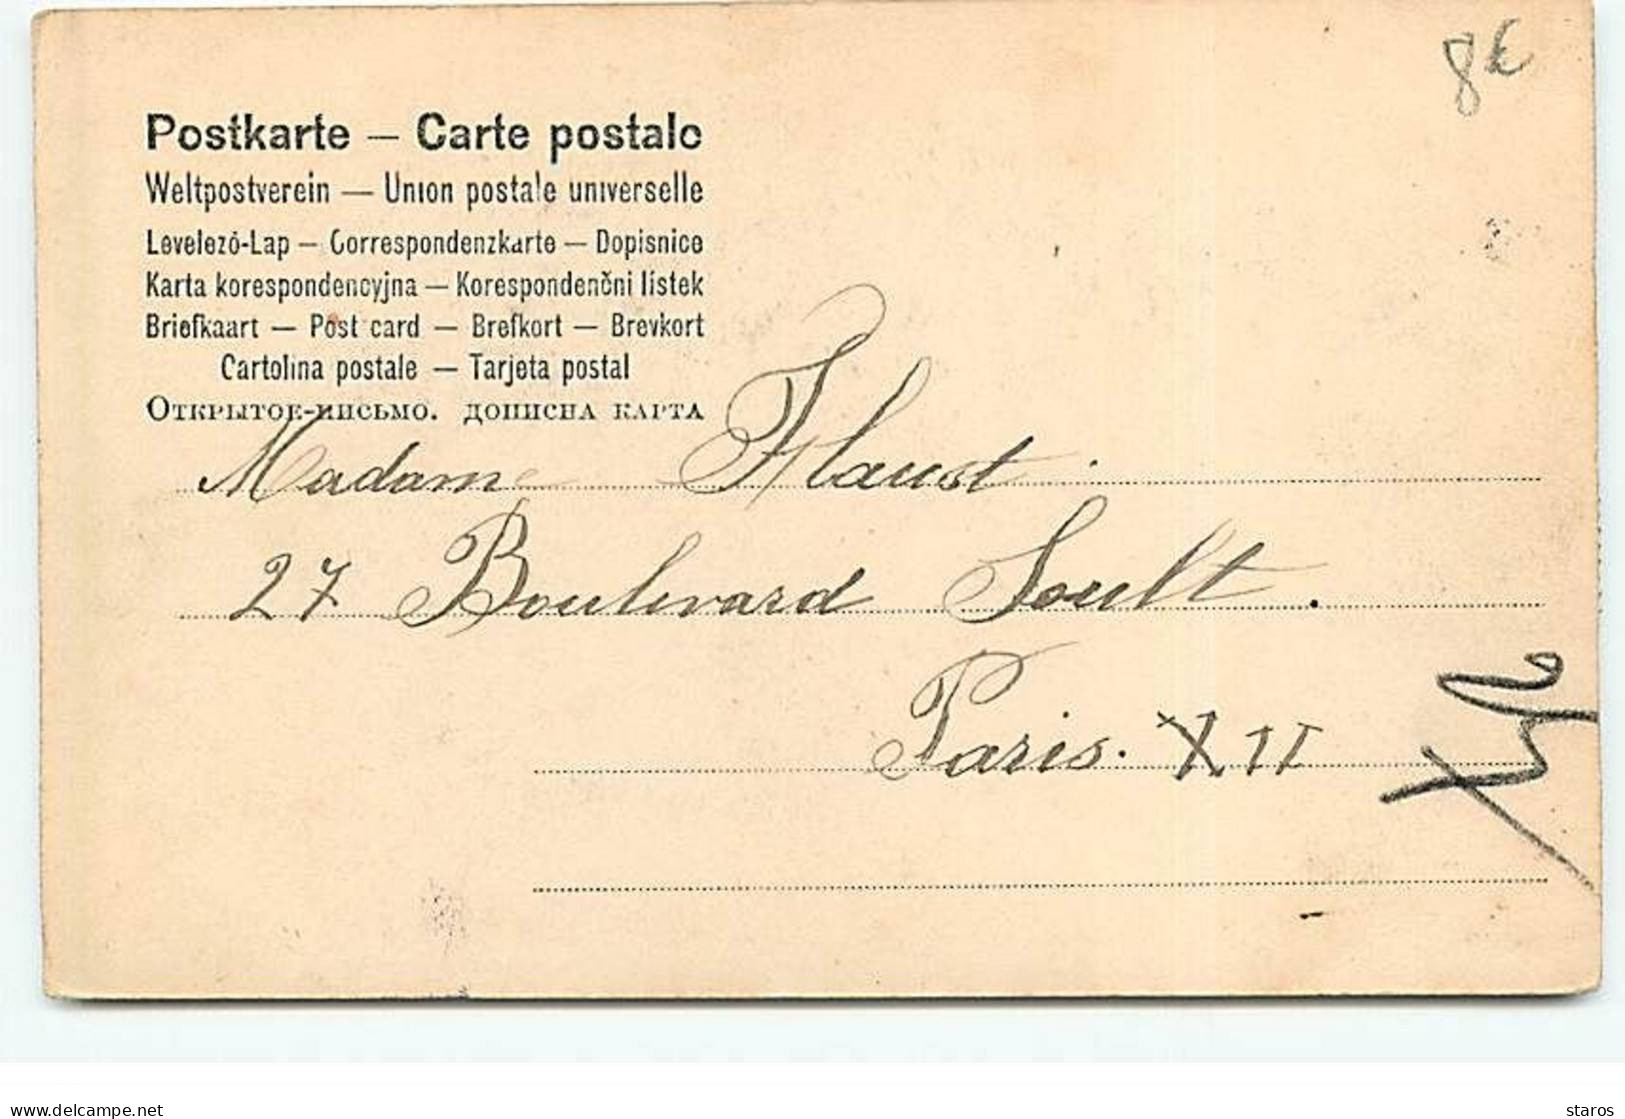 8€
Postkarte — Carte postale
Weltpostverein — Union postale universelle
Levelező-Lap — Correspondenzkarte — Dopisnice
Karta korespondencyjna — Korespondenčni lístek
Briefkaart — Post card — Brefkort — Brevkort
Cartolina postale — Tarjeta postal
Открытое-письмо. дописна карта
Madame Flaust
27 Boulevard Soult.
Paris. XII
delcampe.net
staros